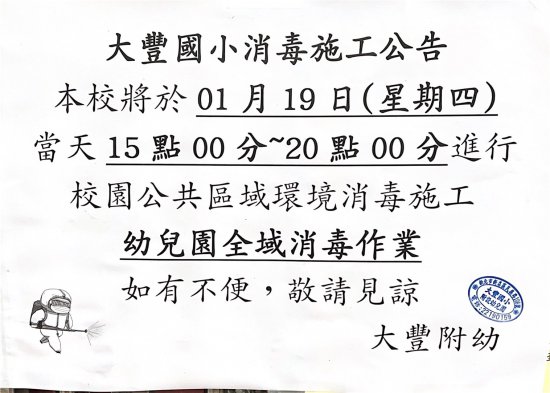 大豐國小消毒施工公告
本校將於 01 月 19 日(星期四)
當天 15 點 00 分~20 點 00 分進行
校園公共區域環境消毒施工
幼兒園全域消毒作業
如有不便，敬請見諒
大豐國小
附設幼兒園
22190159
大豐附幼